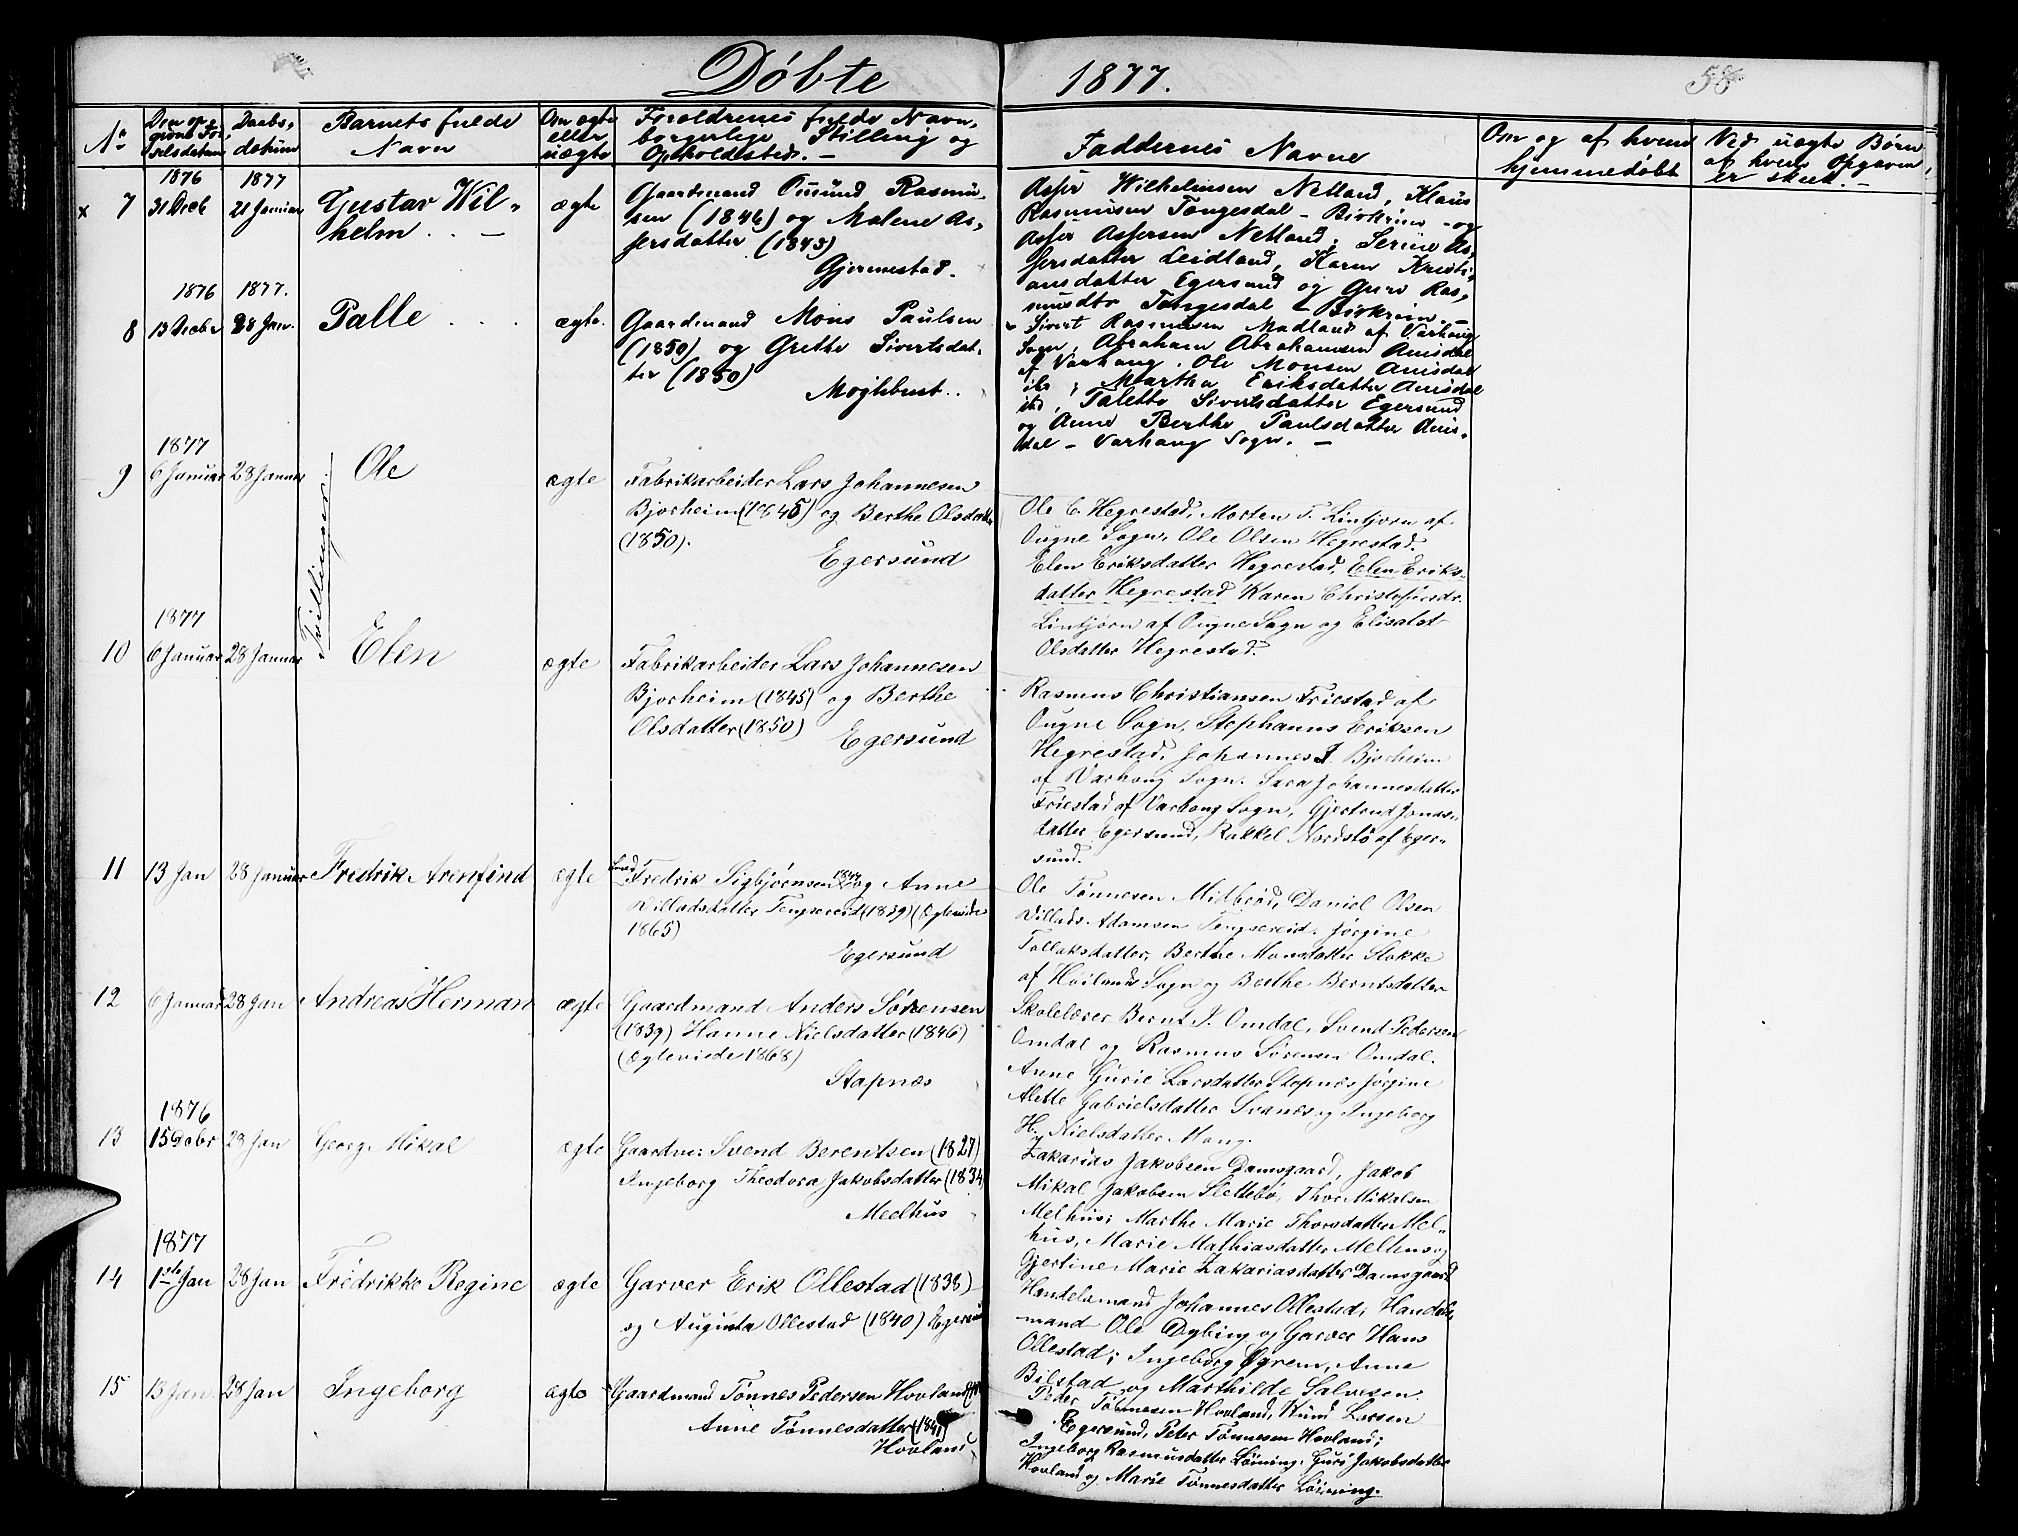 Døbte 1877.
58
No
Den opgivne Fødselsdatum
Daabsdatum
Barnets fulde Navn
Om ægte eller uægte
Forældrenes fulde Navn, borgerlige Stilling og Opholdssted. —
Faddernes Navne
Om og af hvem hjemmedøbt
Ved uægte Børn, af hvem Opgaven er skeet. —
x 7
1876
31 Decb
1877
21 Januar
Gustav Wil-
helm . . —
ægte
Gaardmand Omund Rasmu-
sen (1846) og Malene As-
sersdatter (1845)
Gjermestad.
Asser Wilhelmsen Netland, Klaus
Rasmusen Tengesdal - Birkrem - og
Asser Assersen Netland; Serine As-
sersdatter Leidland, Karen Kristi-
ansdatter Egersund og Guro Ras-
musdtr Tengesdal - Birkrem. —
8
1876
13 Decbr
1877.
28 Jan.
Palle . . .
ægte.
Gaardmand Mons Paulsen
(1850) og Grethe Sivertsdat-
ter (1850)
Møglebust..
Sivert Rasmusen Madland af Varhaug
Sogn, Abraham Abrahamsen Anisdal
af Varhaug, Ole Monsen Anisdal
ibd; Martha Eriksdatter Anisdal
ibd, Talette Sivertsdatter Egersund
og Anne Berthe Paulsdatter Anis-
dal - Varhaug Sogn. —
Tvillinger
9
1877
6 Januar
28 Januar
Ole
ægte
Fabrikarbeider Lars Johannesen
Bjorheim (1845) og Berthe Olsdatter
(1850).
Egersund
Ole E. Hegrestad, Morten T. Lintjørn af
Ougne Sogn, Ole Olsen Hegrestad.
Elen Eriksdatter Hegrestad, Elen Eriks-
datter Hegrestad Karen Christofersdr.
Lintjørn af Ougne Sogn og Elisabet
Olsdatter Hegrestad.
10
1877
6 Januar
28 Januar
Elen
ægte
Fabrikarbeider Lars Johannesen
Bjorheim (1845) og Berthe
Olsdatter (1850)
Egersund
Rasmus Christiansen Friestad af
Ougne Sogn, Stephanus Eriksen
Hegrestad, Johannes J. Bjorheim
af Varhaug Sogn. Sara Johannesdatter
Friestad af Varhaug Sogn, Gjertrud Jonas-
datter Egersund, Rakkel Nordstø af Eger-
sund.
11
13 Jan
28 Januar
Fredrik Arenfind
ægte
Fredrik Sigbjørnsen 1844 og Anne
Villadsdatter Tengsereid (1839) (Ægteviede
1865)
Egersund
Ole Tønnesen Midbrød, Daniel Olsen
Villads Adamsen Tengsereid. Jørgine
Tollaksdatter, Berthe Monsdatter Stokke
af Høilands Sogn og Berthe Berntsdatter
12
6 Januar
28 Jan
Andreas Herman
ægte
Gaardmand Anders Sørensen
(1839) Hanne Nielsdatter (1846)
(Ægteviede 1868)
Stapnæs
Skolelærer Bernt J. Omdal, Svend Pedersen
Omdal og Rasmus Sørensen Omdal.
Anne Gurie Larsdatter Stapnæs Jørgine
Alette Gabrielsdatter Svanes og Ingeborg
H. Nielsdatter Mong.
13
1876
15 Decbr
28 Jan
Georg Mikal
ægte
Gaardm: Svend Berentsen (1827)
Ingeborg Theodora Jakobsdatter (1834
Meelhus
Zakarias Jakobsen Damsgaard, Jakob
Mikal Jakobsen Slettebø, Thor Mikalsen
Melhus; Marthe Marie Thorsdatter Mel-
hus, Marie Mathiasdatter Melhus og
Gjertine Marie Zakariasdatter Damsgaard
14
1877
1ste Jan
28 Jan
Fredrikke Regine
ægte
Garver Erik Ollestad (1838)
og Augusta Ollestad (1840) Egersund
Handelsmand Johannes Ollestad, Handels-
mand Ole Dybing og Garver Hans
Ollestad; Ingeborg Øgrem, Anne
Bilstad og Marthilde Salvesen.
15
13 Jan.
28 Jan
Ingeborg
ægte
Gaardmand Tønnes Pedersen Hovland
Anne Tønnesdatter (1841)
Hovland
Peder Tønnesen Hovland, Knud Larsen
Egersund, Peter Tønnesen Hovland;
Ingeborg Rasmusdatter Løining, Guri Jakobsdatter
Hovland og Marie Tønnesdatter Løining.